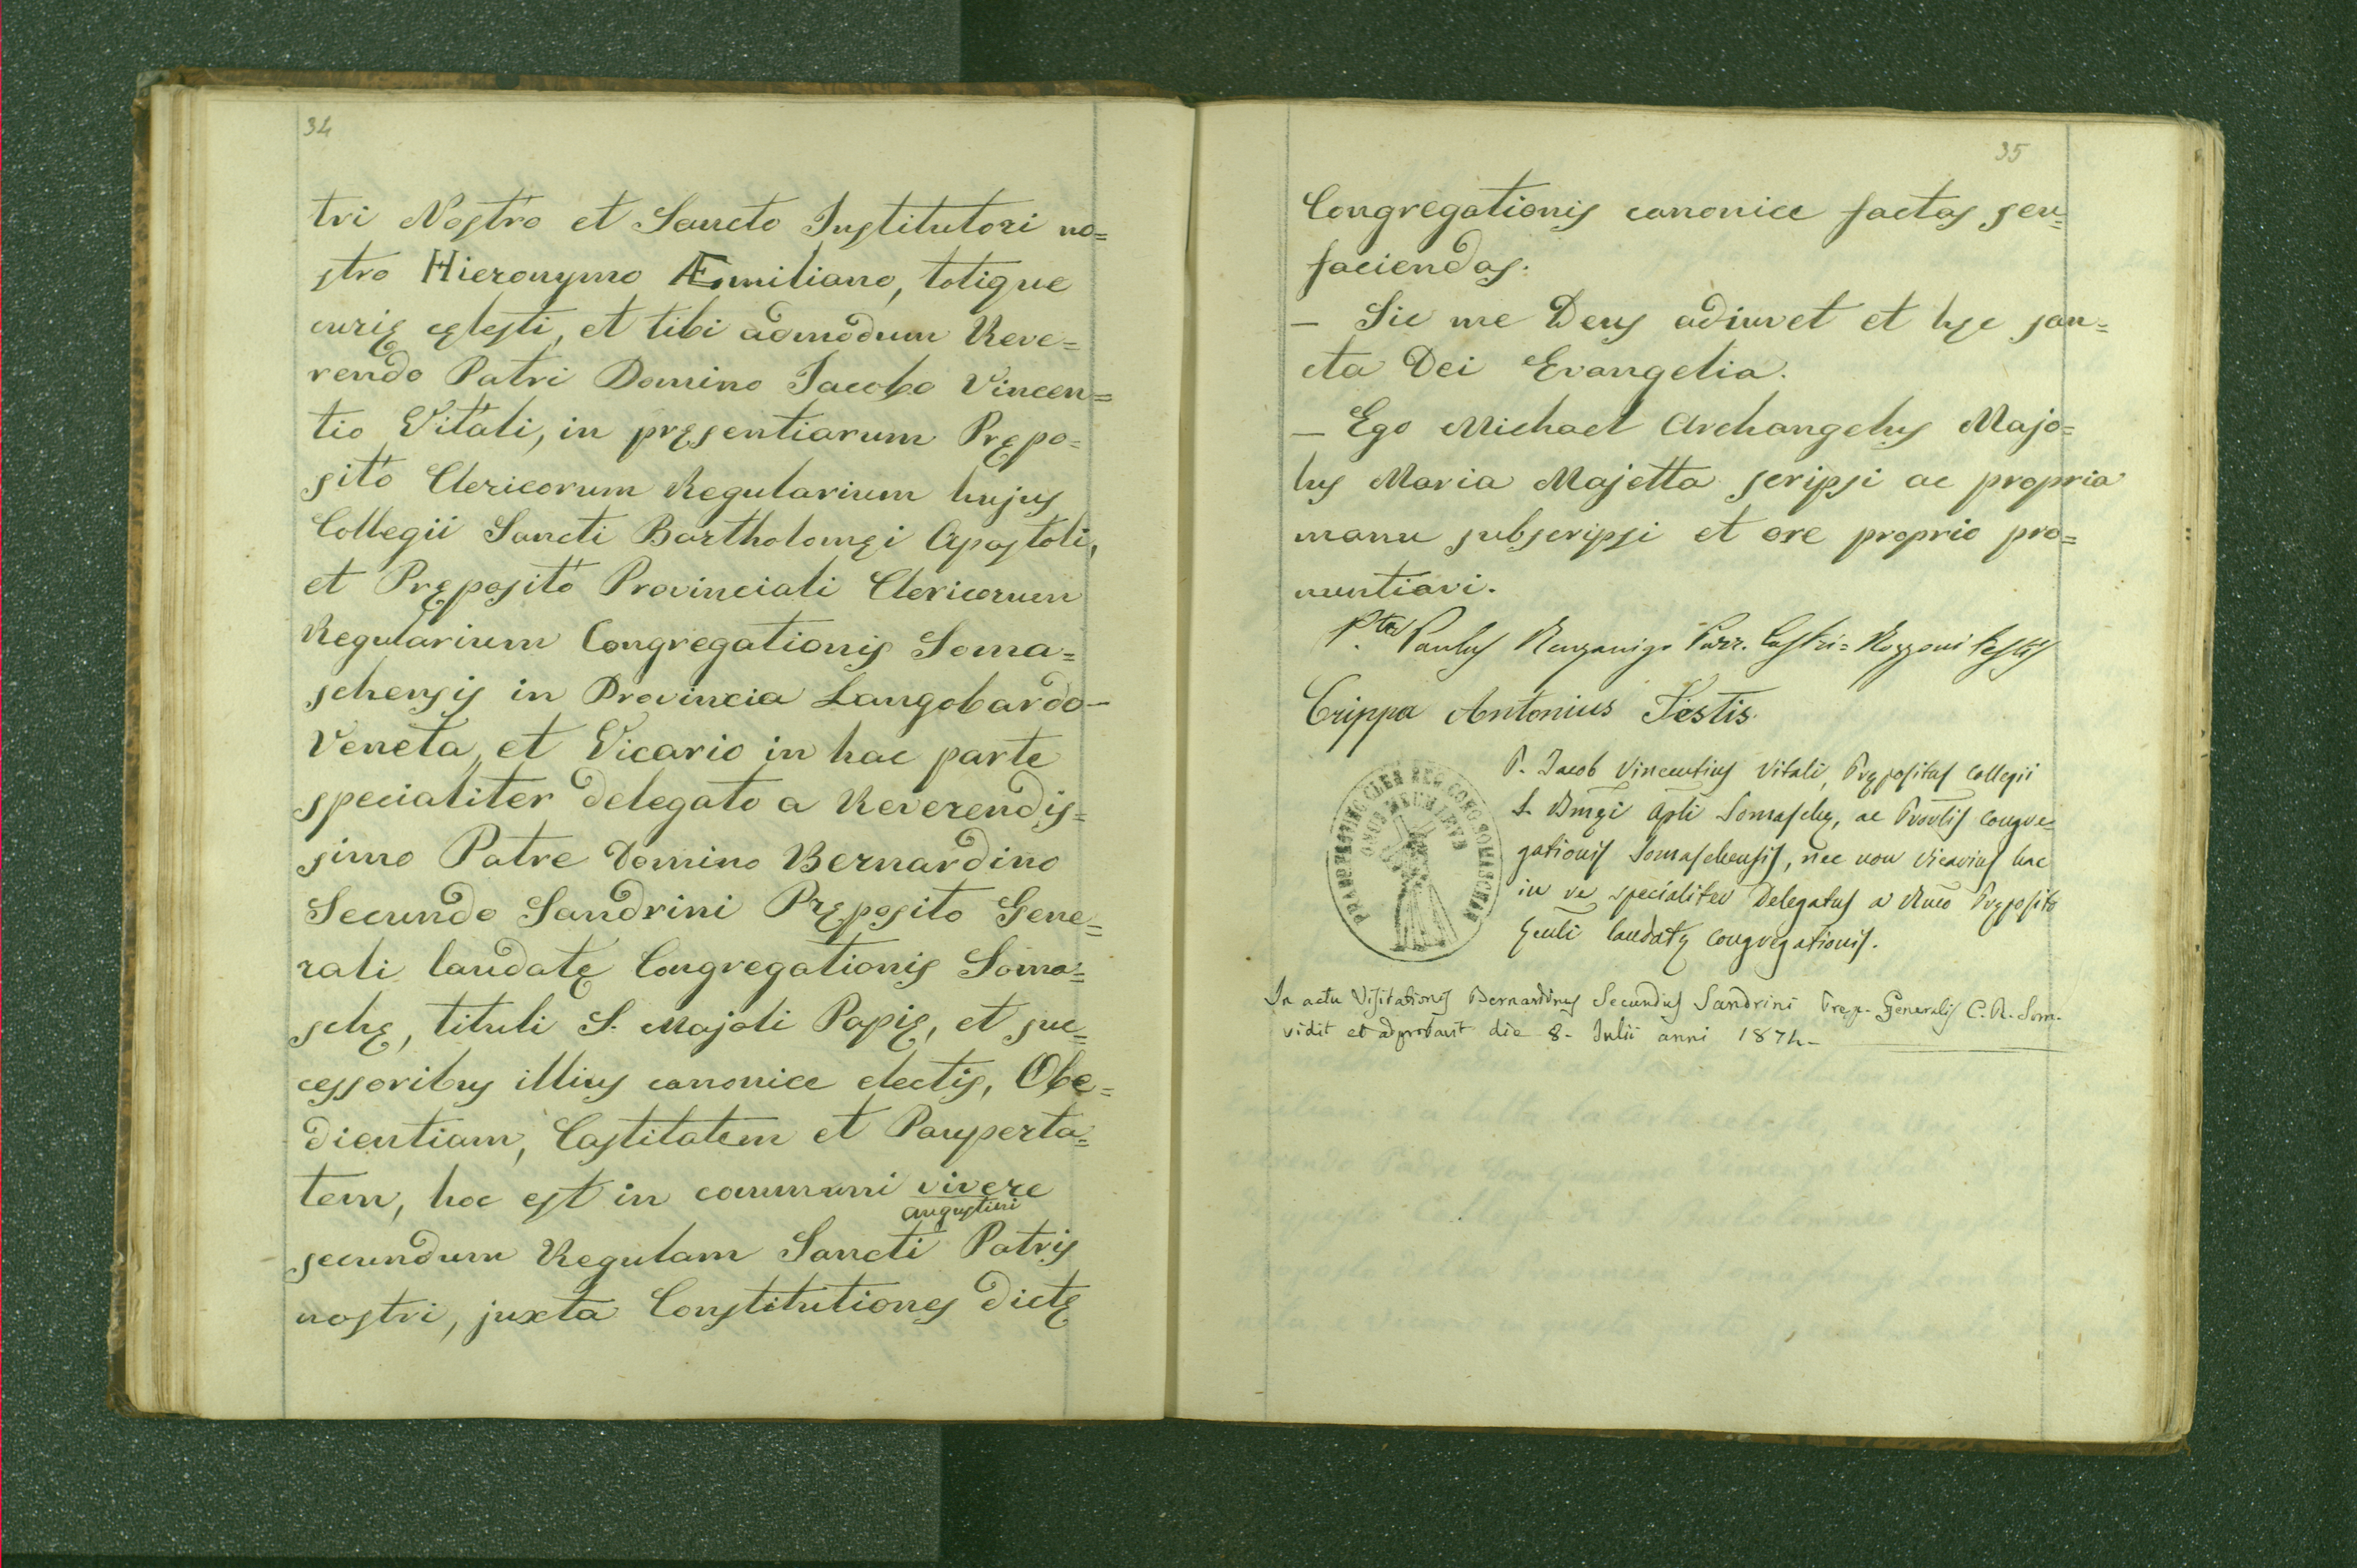 34
tri Nostro et Sancto Institutori no=
stro Hieronymo Æmiliano, totique
curię cęlesti, et tibi admodum Reve=
rendo Patri Domino Jacobo Vincen=
tio Vitali, in pręsentiarum Prępo=
sito Clericorum Regularium hujus
Collegii Sancti Bartholomęi Apostoli,
et Pręposito Provinciali Clericorum
Regularium Congregationis Soma=
schensis in Provincia Langobardo-
Veneta, et Vicario in hac parte
specialiter delegato a Reverendis=
simo Patre Domino Bernardino
Secundo Sandrini Pręposito Gene=
rali laudatę Congregationis Soma=
schę, tituli S. Majoli Papię, et suc=
cessoribus illius canonice electis, Obe=
dientiam, Castitatem et Pauperta=
tem, hoc est in communi vivere
augustini
secundum Regulam Sancti Patris
nostri, juxta Constitutiones dictę
35
Congregationis canonice factas seu=
faciendas.
— Sic me Deus adiuvet et hęc san=
cta Dei Evangelia.
— Ego Michael Archangelus Majo=
lus Maria Majetta scripsi ac propria
manu subscripsi et ore proprio pro=
nuntiavi.
P.ter Paulus Parr. Castri= Rozzoni testis
Crippa Antonius Testis.
P. Jacob Vincentius Vitali, Prępositus Collegii
S. Bmęi Apli Somaschę, ac Provlis Congre=
gationis Somaschensis, nec non Vicarius hac
in re specialiter Delegatus a Rmo Pręposito
Genli laudatę Congregationis.
ONUS MEUM LEVE
In actu Visitationis Bernardinus Secundus Sandrini Prep. Generalis C. R. Som.
vidit et adprobavit die 8. Julii anni 1874.